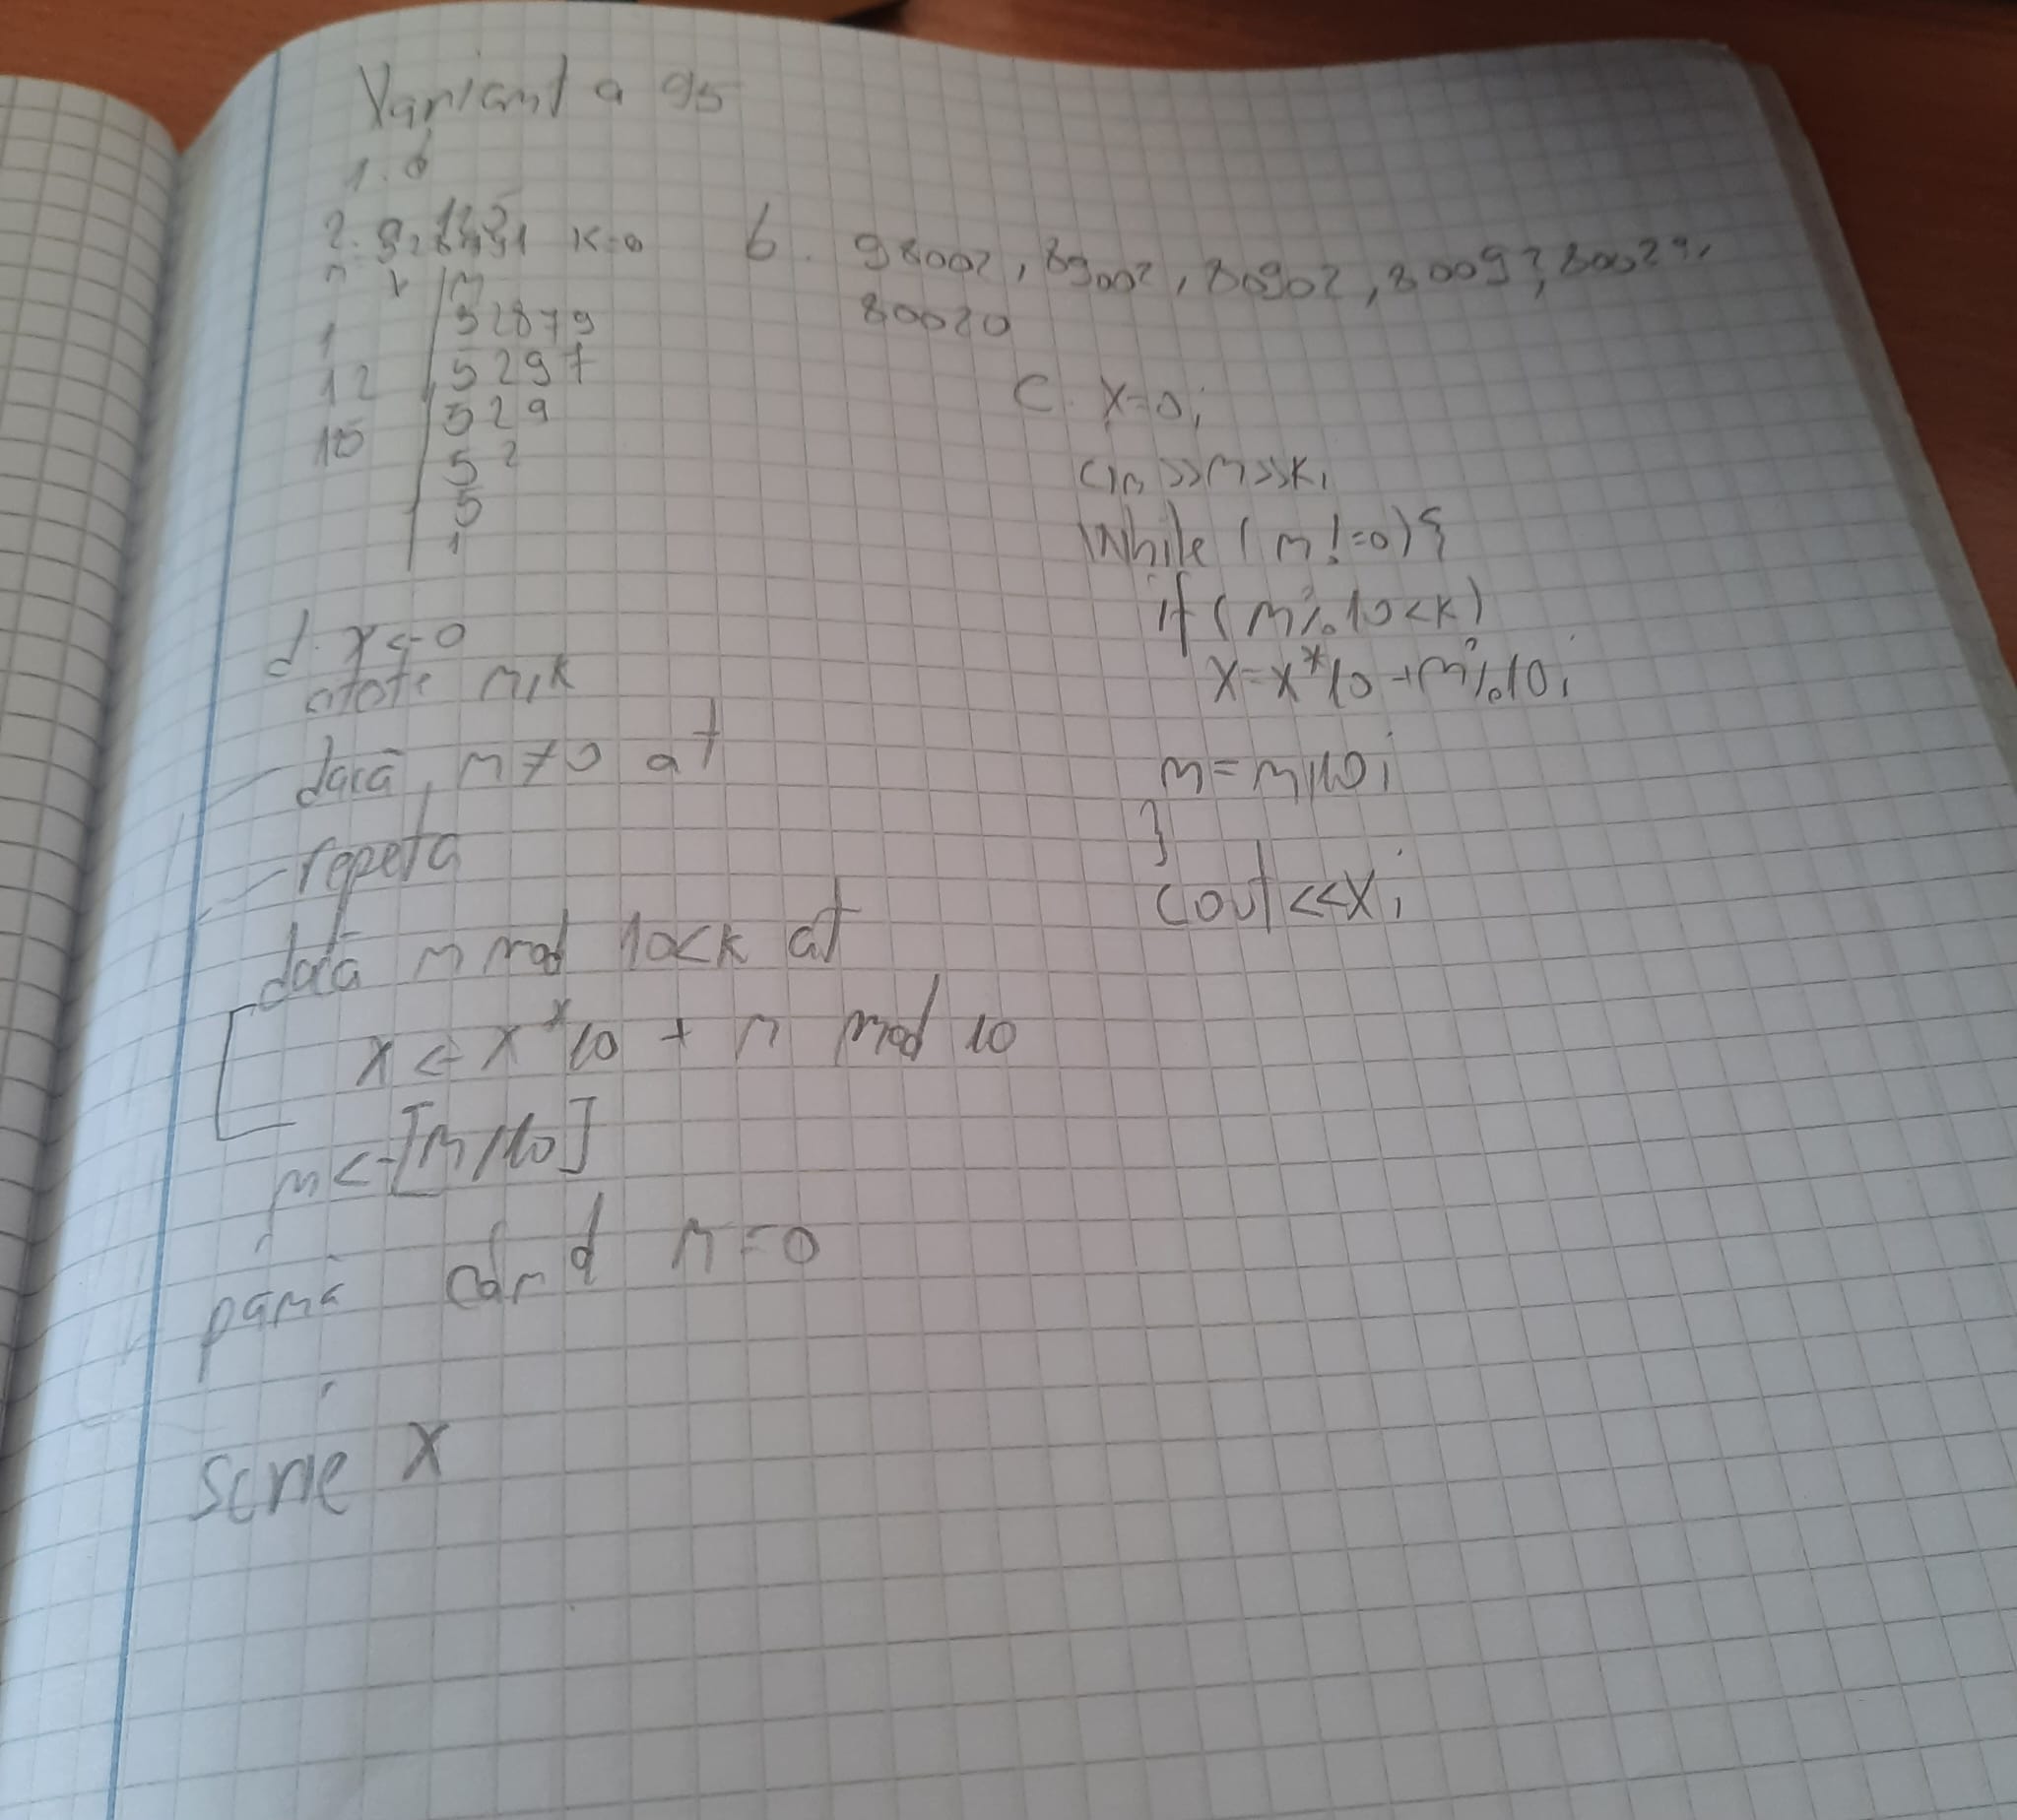 Varianta 95
1. d
2. K=0
n x | n
1 | 52879
12 | 5297
125 | 529
52
5
1
b. 98002, 89002, 80902, 80092, 80029,
80020
c. x=0;
cin>>n>>k;
while (n!=0){
if (n%10<k)
x=x*10+n%10;
n=n/10;
}
cout<<x;
d. x<-0
citeste n,k
dacă n≠0 at
repeta
dacă n mod 10<k at
x<-x*10 + n mod 10
n<-[n/10]
pană când n=0
scrie x